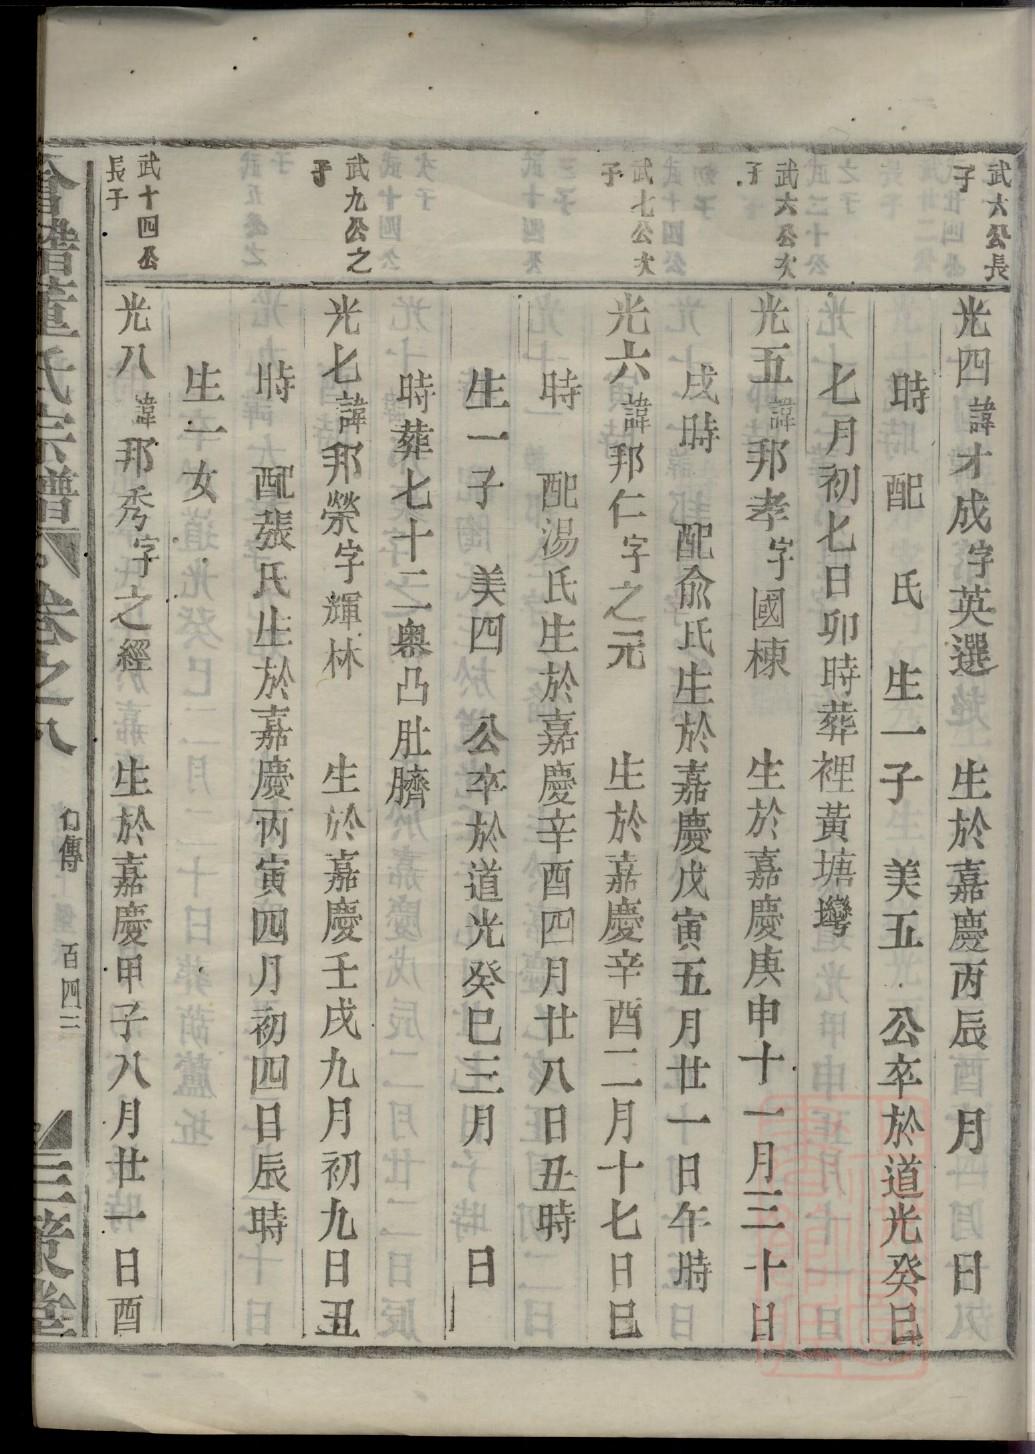 武六公長
子
光四諱才成字英選 生於嘉慶丙辰 月 日
時 配 氏 生一子 美五 公卒於道光癸巳
七月初七日卯時葬裡黃塘灣
武六公次
子
光五諱邦孝字國棟 生於嘉慶庚申十一月三十日
戌時 配俞氏生於嘉慶戊寅五月廿一日午時
武七公次
子
光六諱邦仁字之元 生於嘉慶辛酉二月十七日巳
時 配湯氏生於嘉慶辛酉四月廿八日丑時
生一子 美四 公卒於道光癸巳三月 日
時葬七十二奧凸肚臍
武九公之
子
光七諱邦榮字輝林 生於嘉慶壬戌九月初九日丑
時 配張氏生於嘉慶丙寅四月初四日辰時
生一女
武十四公
長子
光八諱邦秀字之經 生於嘉慶甲子八月廿一日酉
會稽董氏宗譜 卷之八 傳 百四三 三策堂